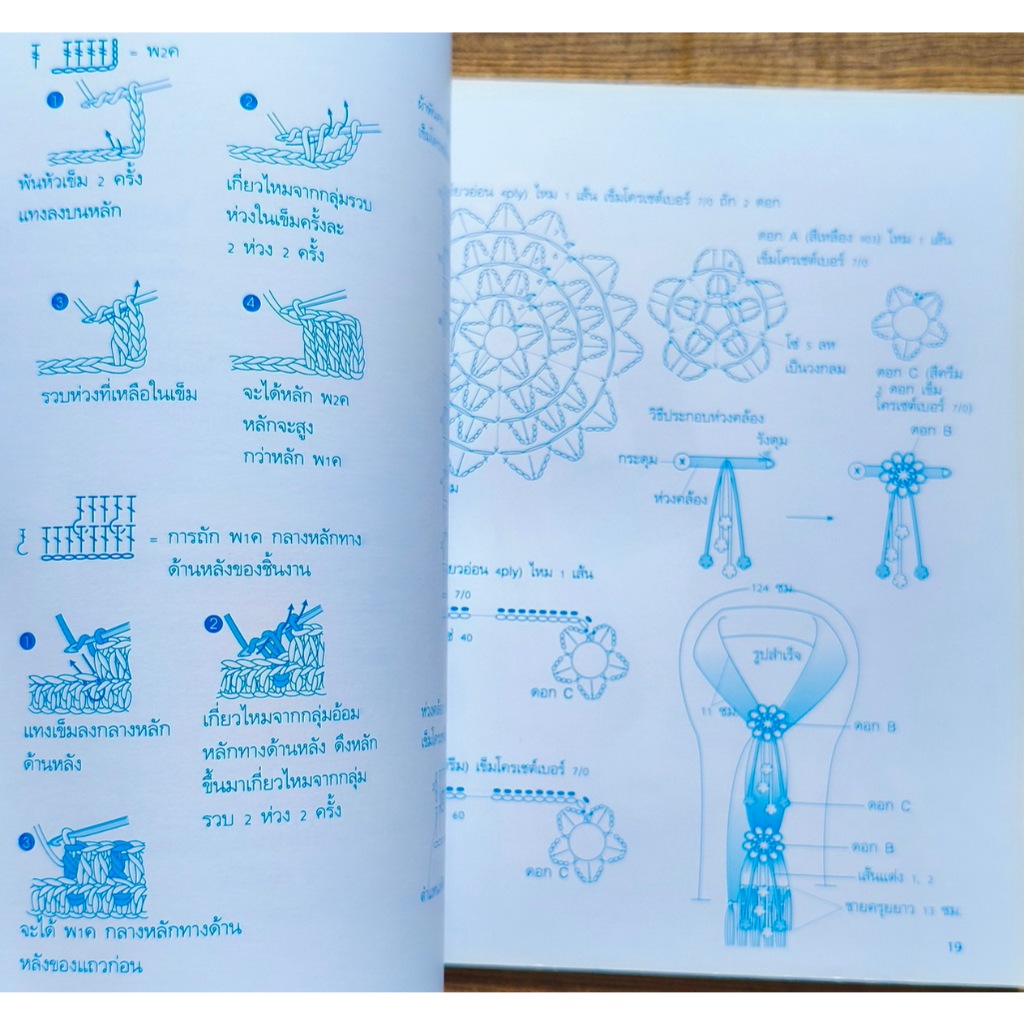 = พ2ค
1
2
พันหัวเข็ม 2 ครั้ง
แทงลงบนหลัก
เกี่ยวไหมจากกลุ่มรวบ
ห่วงในเข็มครั้งละ
2 ห่วง 2 ครั้ง
3
4
รวบห่วงที่เหลือในเข็ม
จะได้หลัก พ2ค
หลักจะสูง
กว่าหลัก พ1ค
= การถัก พ1ค กลางหลักทาง
ด้านหลังของชิ้นงาน
1
2
แทงเข็มลงกลางหลัก
ด้านหลัง
เกี่ยวไหมจากกลุ่มอ้อม
หลักทางด้านหลัง ดึงหลัก
ขึ้นมาเกี่ยวไหมจากกลุ่ม
รวบ 2 ห่วง 2 ครั้ง
3
จะได้ พ1ค กลางหลักทางด้าน
หลังของแถวก่อน
4ply) ไหม 1 เส้น เข็มโครเชต์เบอร์ 7/0 ถัก 2 ดอก
ดอก A (สีเหลือง 903) ไหม 1 เส้น
เข็มโครเชต์เบอร์ 7/0
โซ่ 5 ลห
เป็นวงกลม
ดอก C (สีครีม
2 ดอก เข็ม
โครเชต์เบอร์ 7/0)
วิธีประกอบห่วงคล้อง
รังดุม
กระดุม
ห่วงคล้อง
ดอก B
4ply) ไหม 1 เส้น
7/0
40
ดอก C
เข็มโครเชต์เบอร์ 7/0
60
ดอก C
124 ซม.
รูปสำเร็จ
11 ซม.
ดอก B
ดอก C
ดอก B
เส้นแต่ง 1, 2
ชายครุยยาว 13 ซม.
19